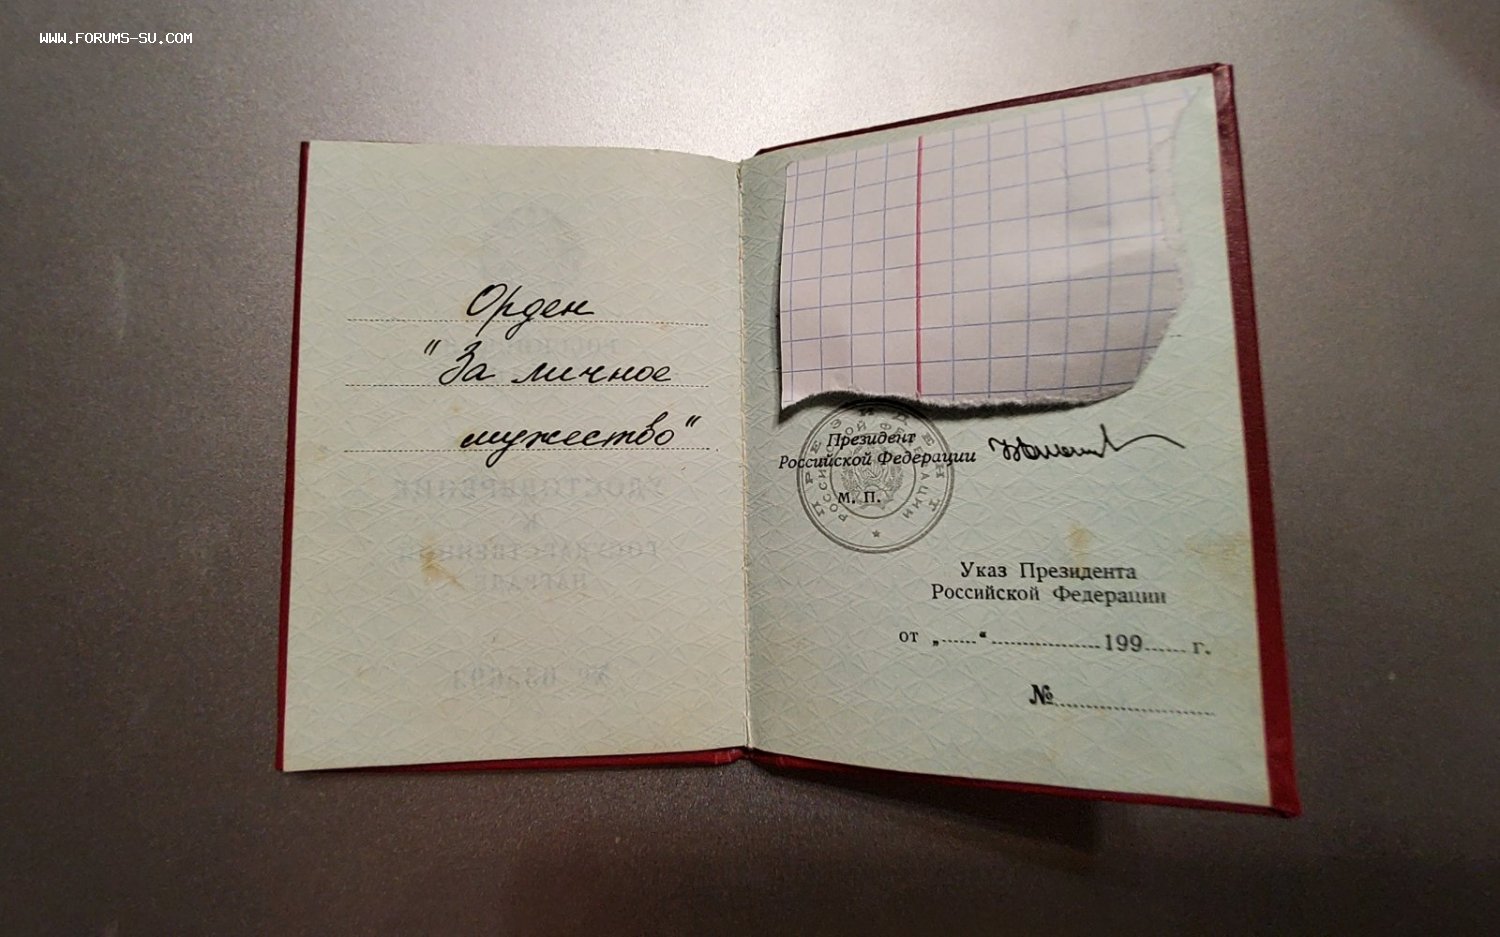 WWW.FORUMS-SU.COM
Орден
"За личное
мужество"
Президент
Российской Федерации
М. П.
ПРЕЗИДЕНТ
РОССИЙСКОЙ ФЕДЕРАЦИИ
Указ Президента
Российской Федерации
от „......“ .................. 199...... г.
№........................